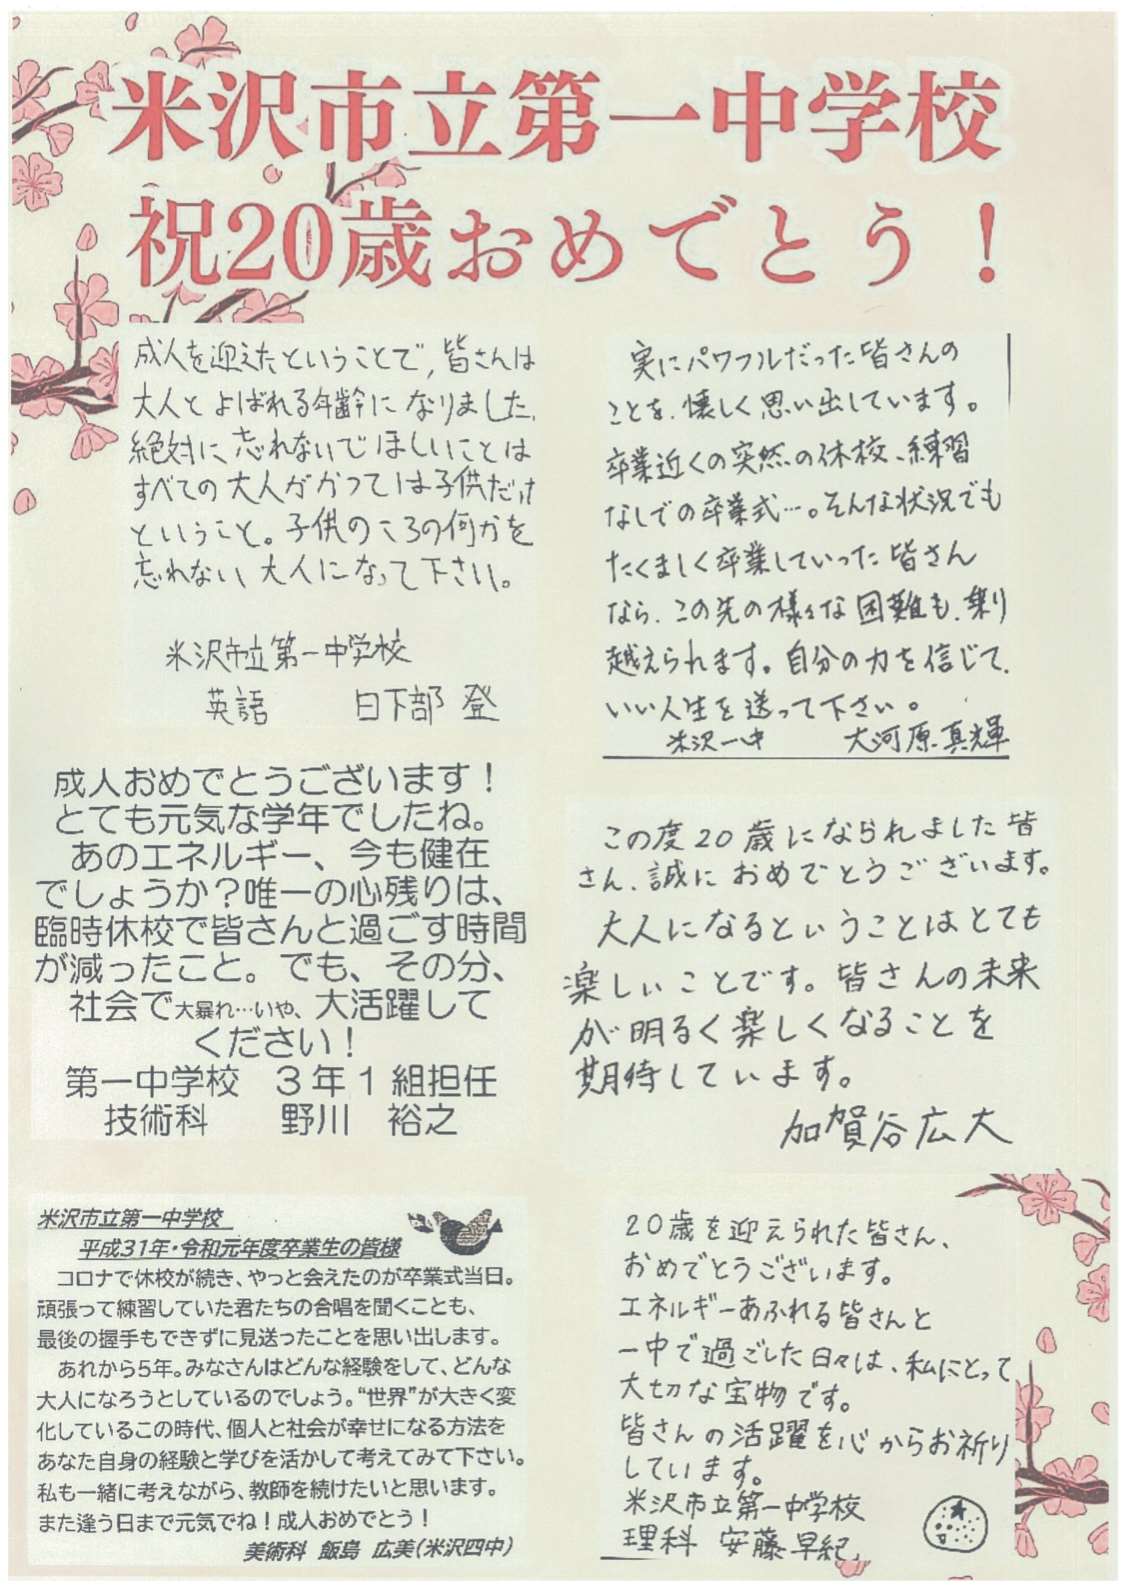 米沢市立第一中学校
祝20歳おめでとう！
成人を迎えたということで,皆さんは
大人とよばれる年齢になりました.
絶対に忘れないでほしいことは
すべての大人がかつては子供だけ
ということ。子供のころの何かを
忘れない大人になって下さい。
米沢市立第一中学校
英語　日下部 登
実にパワフルだった皆さんの
ことを、懐しく思い出しています。
卒業近くの突然の休校、練習
なしでの卒業式…。そんな状況でも
たくましく卒業していった皆さん
なら、この先の様々な困難も、乗り
越えられます。自分の力を信じて、
いい人生を送って下さい。
米沢一中　大河原真輝
成人おめでとうございます！
とても元気な学年でしたね。
あのエネルギー、今も健在
でしょうか？唯一の心残りは、
臨時休校で皆さんと過ごす時間
が減ったこと。でも、その分、
社会で大暴れ…いや、大活躍して
ください！
第一中学校　３年１組担任
技術科　野川　裕之
この度20歳になられました皆
さん、誠におめでとうございます。
大人になるということはとても
楽しいことです。皆さんの未来
が明るく楽しくなることを
期待しています。
加賀谷広大
米沢市立第一中学校
平成31年・令和元年度卒業生の皆様
コロナで休校が続き、やっと会えたのが卒業式当日。
頑張って練習していた君たちの合唱を聞くことも、
最後の握手もできずに見送ったことを思い出します。
あれから5年。みなさんはどんな経験をして、どんな
大人になろうとしているのでしょう。“世界”が大きく変
化しているこの時代、個人と社会が幸せになる方法を
あなた自身の経験と学びを活かして考えてみて下さい。
私も一緒に考えながら、教師を続けたいと思います。
また逢う日まで元気でね！成人おめでとう！
美術科　飯島　広美（米沢四中）
20歳を迎えられた皆さん、
おめでとうございます。
エネルギーあふれる皆さんと
一中で過ごした日々は、私にとって
大切な宝物です。
皆さんの活躍を心からお祈り
しています。
米沢市立第一中学校
理科　安藤早紀